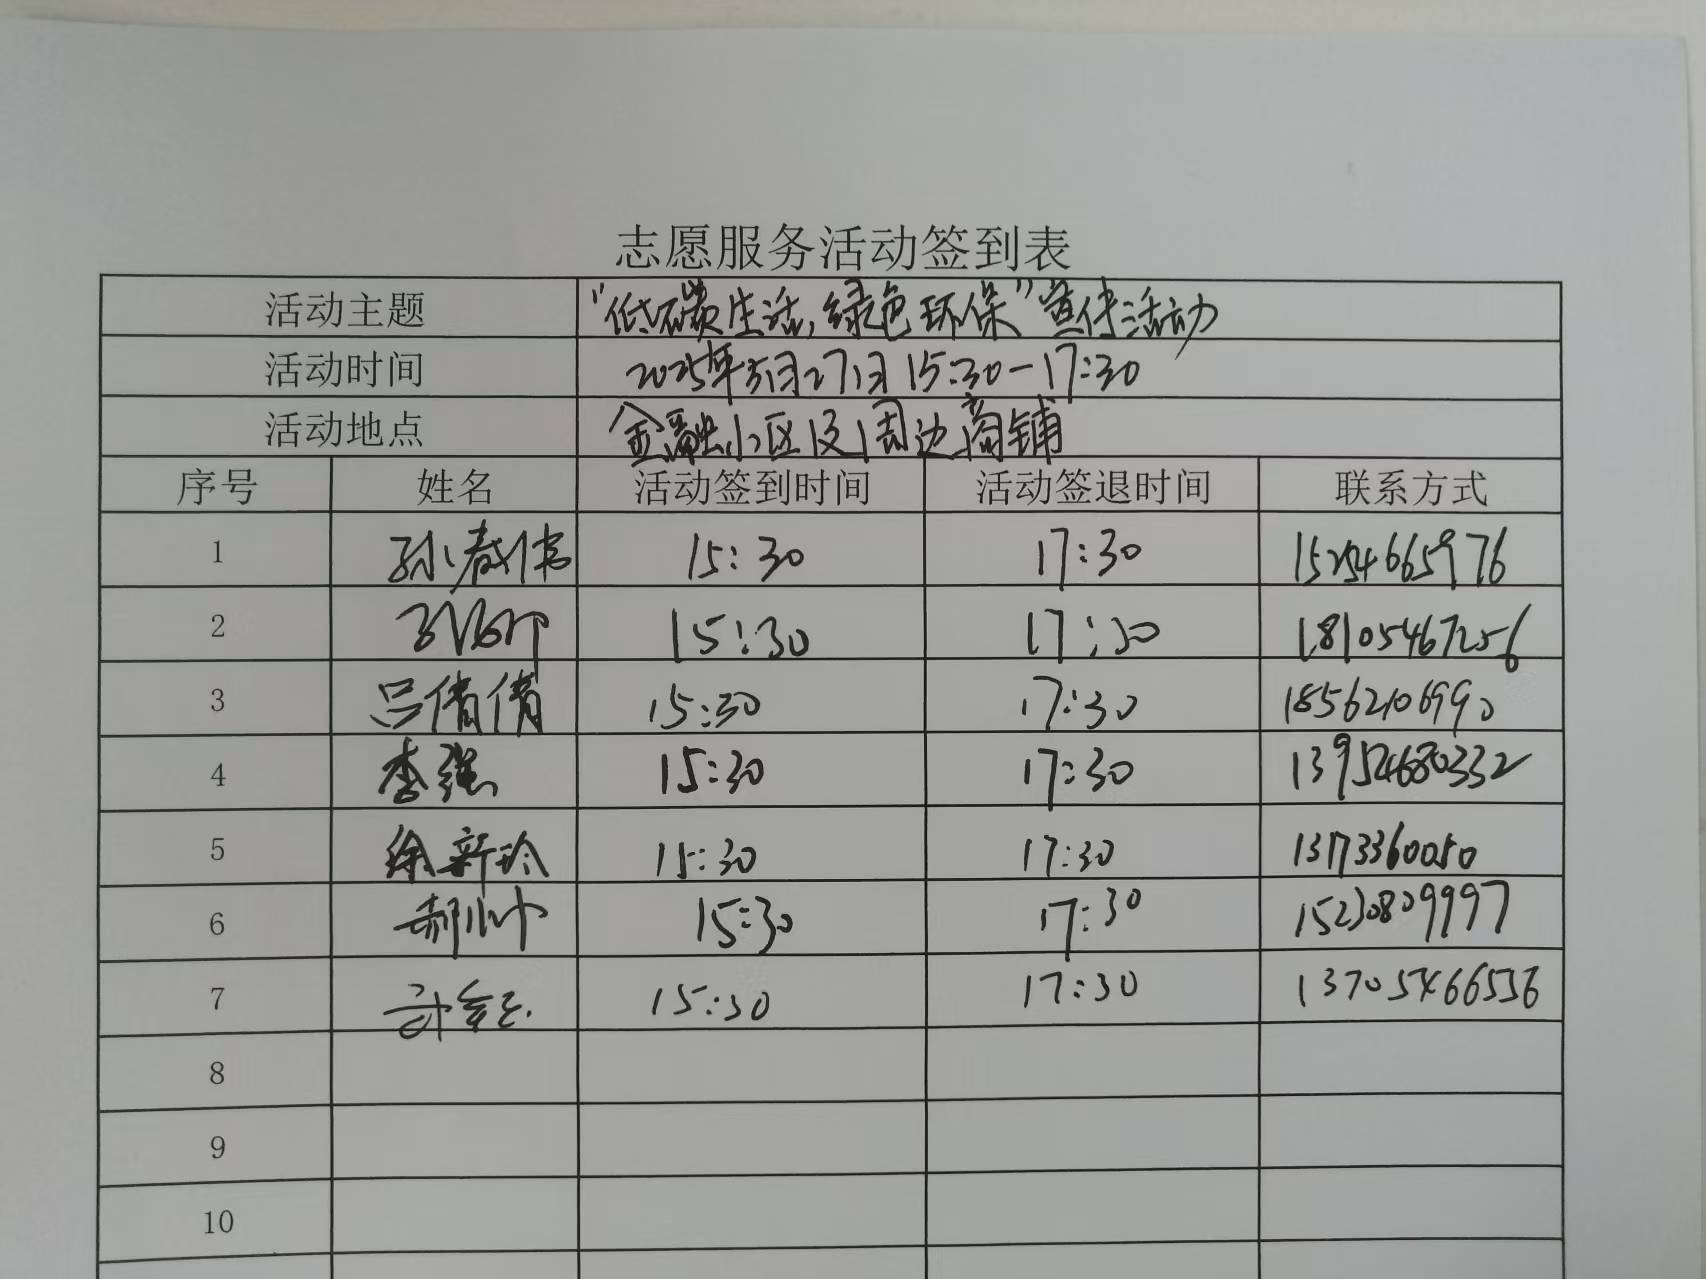 志愿服务活动签到表
活动主题 "低碳生活,绿色环保"宣传活动
活动时间 2025年5月27日 15:30-17:30
活动地点 金融小区及周边商铺
序号 姓名 活动签到时间 活动签退时间 联系方式
1 孙春伟 15:30 17:30 15254665976
2 15:30 17:30 18105467256
3 吕倩倩 15:30 17:30 18562106990
4 李强 15:30 17:30 13954680332
5 徐新玲 15:30 17:30 13173360050
6 15:30 17:30 15230809997
7 15:30 17:30 13705466556
8
9
10